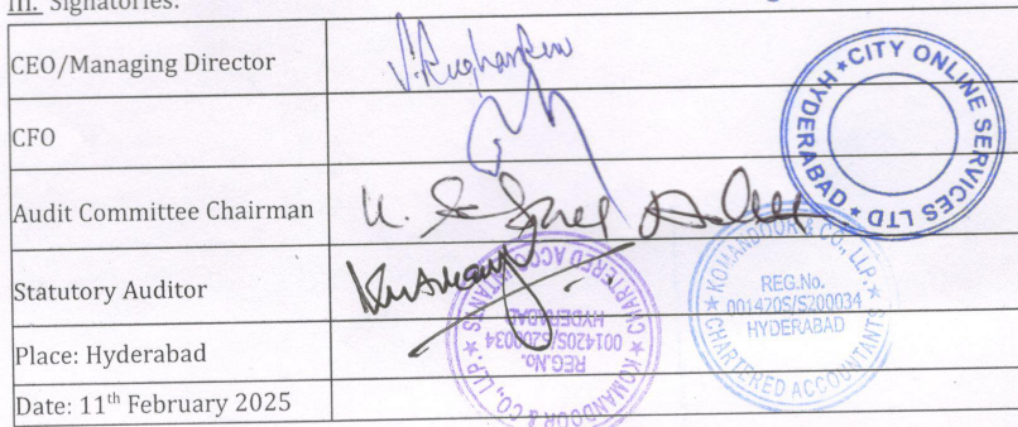 III. Signatories:
CEO/Managing Director
CFO
Audit Committee Chairman
Statutory Auditor
Place: Hyderabad
Date: 11th February 2025
★ CITY ONLINE SERVICES LTD ★ HYDERABAD
KOMANDOOR & CO., LLP. ★ CHARTERED ACCOUNTANTS ★
REG.No.
001420S/S200034
HYDERABAD
KOMANDOOR & CO., LLP. ★ CHARTERED ACCOUNTANTS ★
REG.No.
001420S/S200034
HYDERABAD